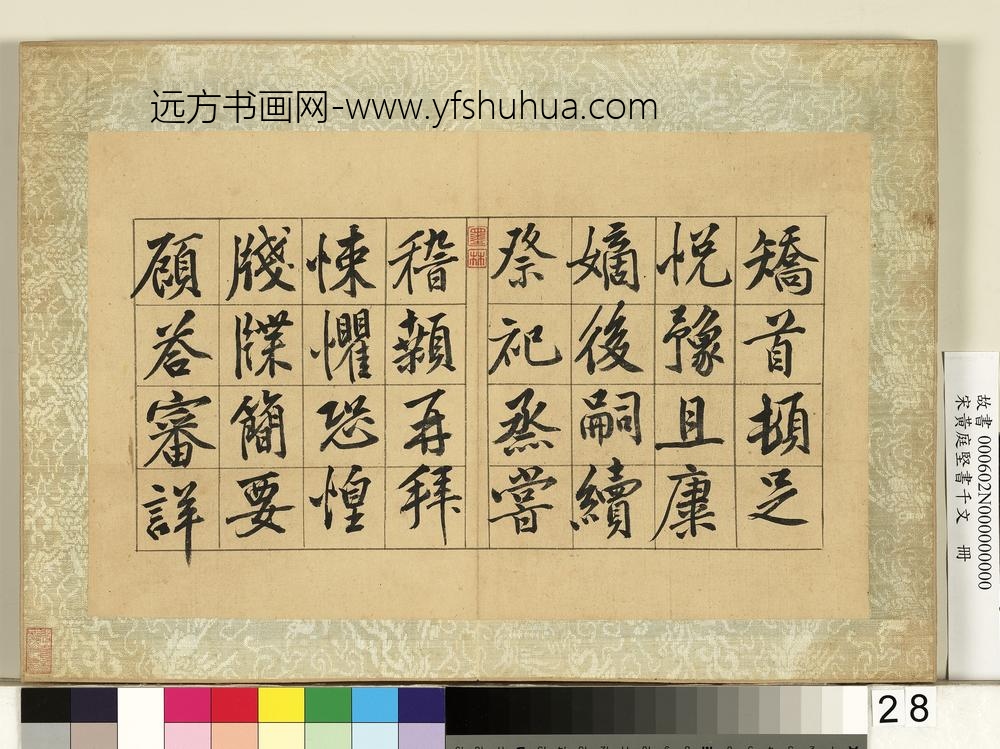 远方书画网-www.yfshuhua.com
矯首頓足
悅豫且康
嫡後嗣續
祭祀烝嘗
墨林
稽顙再拜
悚懼恐惶
牋牒簡要
顧荅審詳
故書 000602N000000000
宋黃庭堅書千文 冊
28